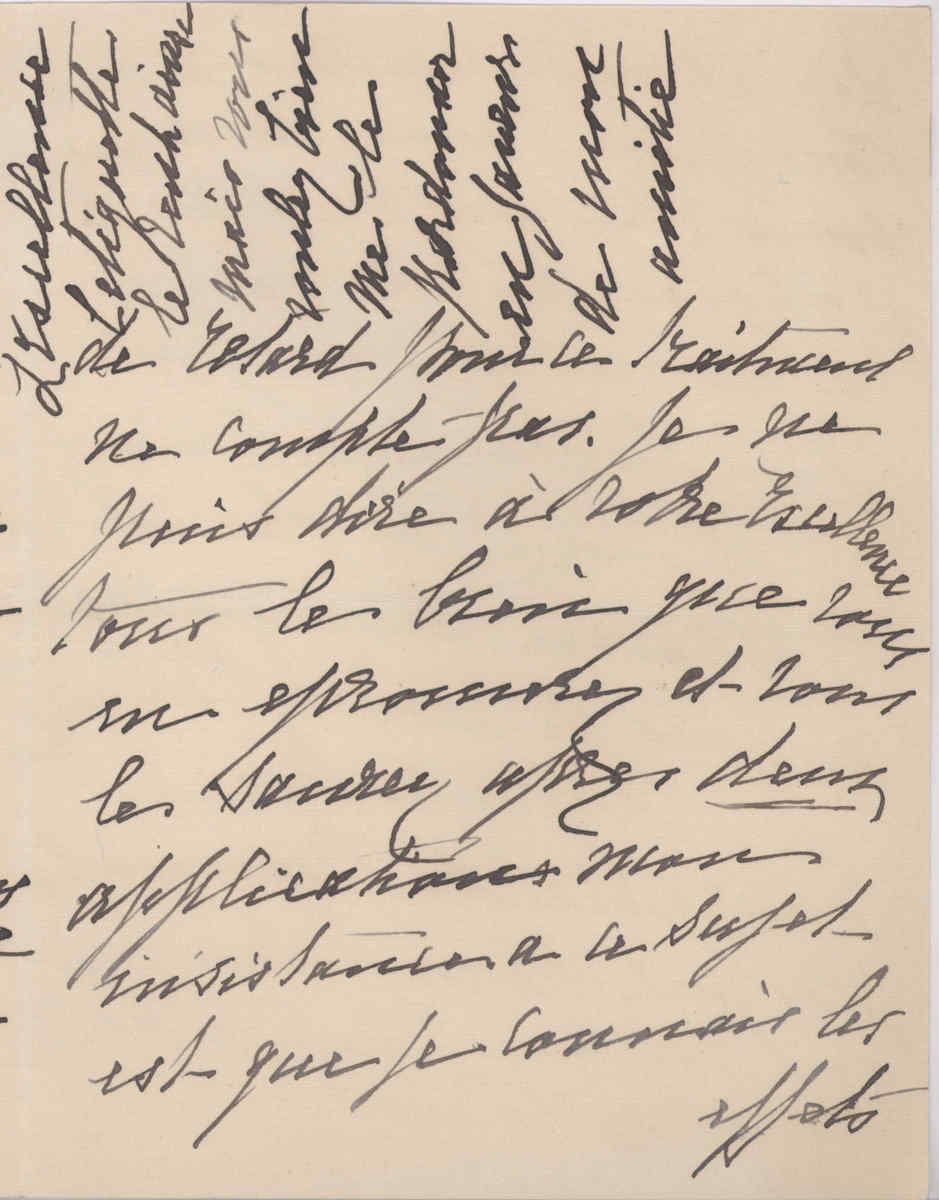 de retard pour ce traitment
ne compte pas. Je ne
puis dire à Votre Excellence
tous le bien que vous
en eprouverez et vous
les saurez apres deux
applications mon
insistance a ce sujet
est que je connais les
effets
L'Excellence
L'etiquette
le
mais vous
voulez bien
me le
pardonner
en souvenir
de mon
amitie